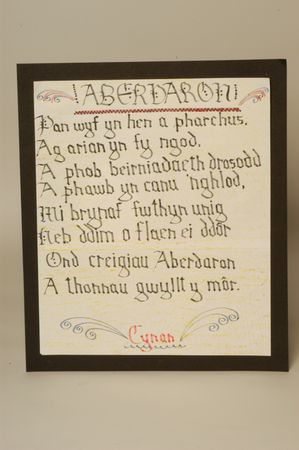 ABERDARON
Pan wyf yn hen a pharchus,
Ag arian yn fy ngod,
A phob beirniadaeth drosodd
A phawb yn canu 'nghlod,
Mi brynaf fwthyn unig
Heb ddim o flaen ei ddôr
Ond creigiau Aberdaron
A thonnau gwyllt y môr.
Cynan